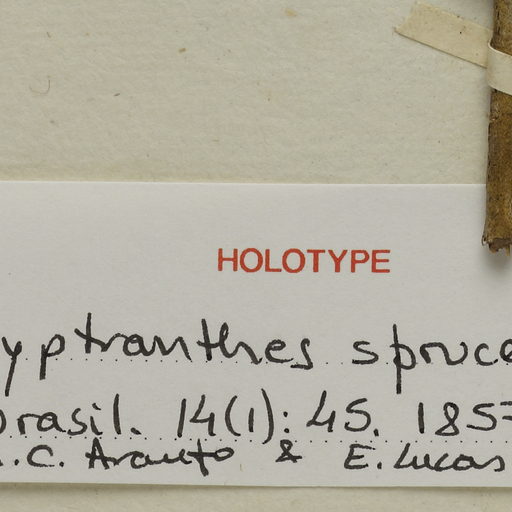 HOLOTYPE
yptranthes spruce
rasil. 14(1): 45. 185
C. Araujo & E. Lucas